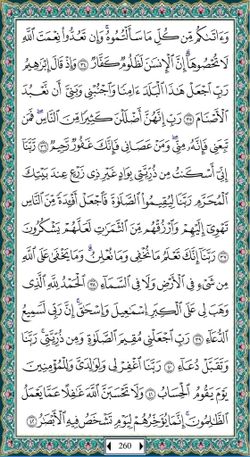 وَءَاتَىٰكُم مِّن كُلِّ مَا سَأَلْتُمُوهُ ۚ وَإِن تَعُدُّوا۟ نِعْمَتَ ٱللَّهِ
لَا تُحْصُوهَآ ۗ إِنَّ ٱلْإِنسَٰنَ لَظَلُومٌ كَفَّارٌ ٣٤ وَإِذْ قَالَ إِبْرَٰهِيمُ
رَبِّ ٱجْعَلْ هَٰذَا ٱلْبَلَدَ ءَامِنًا وَٱجْنُبْنِى وَبَنِىَّ أَن نَّعْبُدَ
ٱلْأَصْنَامَ ٣٥ رَبِّ إِنَّهُنَّ أَضْلَلْنَ كَثِيرًا مِّنَ ٱلنَّاسِ ۖ فَمَن
تَبِعَنِى فَإِنَّهُۥ مِنِّى ۖ وَمَنْ عَصَانِى فَإِنَّكَ غَفُورٌ رَّحِيمٌ ٣٦ رَّبَّنَآ
إِنِّىٓ أَسْكَنتُ مِن ذُرِّيَّتِى بِوَادٍ غَيْرِ ذِى زَرْعٍ عِندَ بَيْتِكَ
ٱلْمُحَرَّمِ رَبَّنَا لِيُقِيمُوا۟ ٱلصَّلَوٰةَ فَٱجْعَلْ أَفْـِٔدَةً مِّنَ ٱلنَّاسِ
تَهْوِىٓ إِلَيْهِمْ وَٱرْزُقْهُم مِّنَ ٱلثَّمَرَٰتِ لَعَلَّهُمْ يَشْكُرُونَ
٣٧ رَبَّنَآ إِنَّكَ تَعْلَمُ مَا نُخْفِى وَمَا نُعْلِنُ ۗ وَمَا يَخْفَىٰ عَلَى ٱللَّهِ
مِن شَىْءٍ فِى ٱلْأَرْضِ وَلَا فِى ٱلسَّمَآءِ ٣٨ ٱلْحَمْدُ لِلَّهِ ٱلَّذِى
وَهَبَ لِى عَلَى ٱلْكِبَرِ إِسْمَٰعِيلَ وَإِسْحَٰقَ ۚ إِنَّ رَبِّى لَسَمِيعُ
ٱلدُّعَآءِ ٣٩ رَبِّ ٱجْعَلْنِى مُقِيمَ ٱلصَّلَوٰةِ وَمِن ذُرِّيَّتِى ۚ رَبَّنَا
وَتَقَبَّلْ دُعَآءِ ٤٠ رَبَّنَا ٱغْفِرْ لِى وَلِوَٰلِدَىَّ وَلِلْمُؤْمِنِينَ
يَوْمَ يَقُومُ ٱلْحِسَابُ ٤١ وَلَا تَحْسَبَنَّ ٱللَّهَ غَٰفِلًا عَمَّا يَعْمَلُ
ٱلظَّٰلِمُونَ ۚ إِنَّمَا يُؤَخِّرُهُمْ لِيَوْمٍ تَشْخَصُ فِيهِ ٱلْأَبْصَٰرُ ٤٢
260